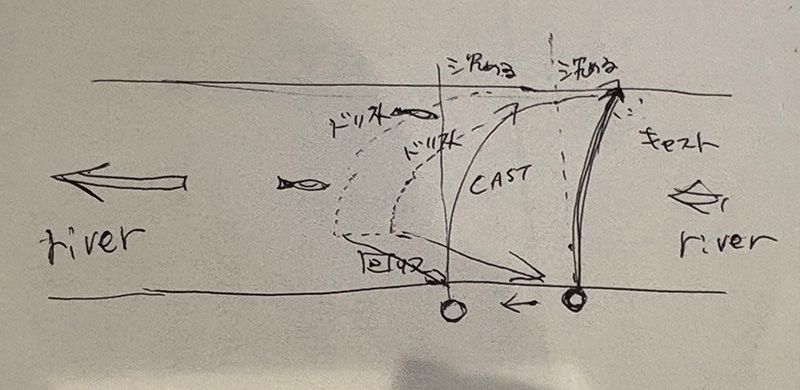 沈める 沈める
ドリフト
ドリフト
キャスト
CAST
river
river
回収